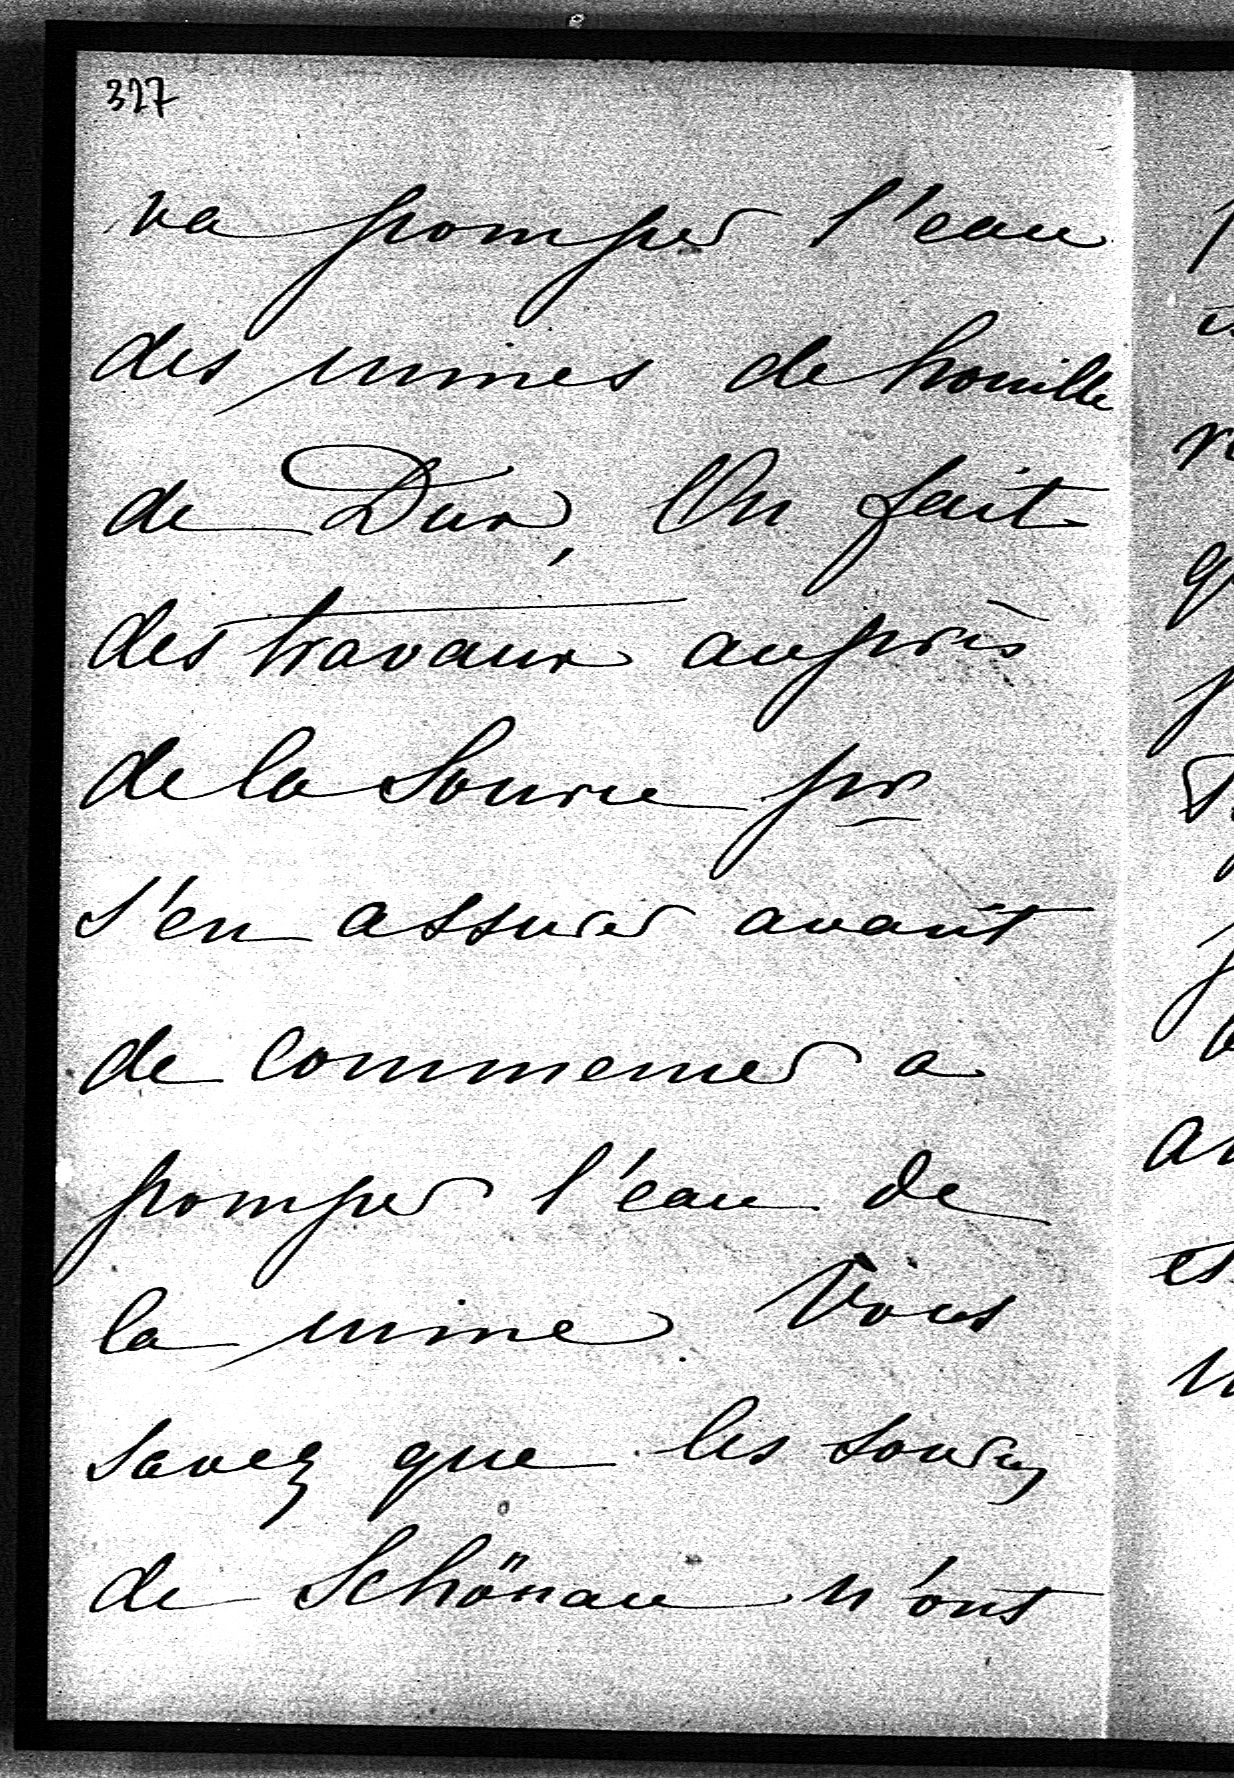 327
va pomper l'eau
des mines de houille
de Dux, On fait
des travaux auprès
de la Source pr
s'en assurer avant
de commencer a
pomper l'eau de
la mine. Vous
savez que les sources
de Schönau n'ont